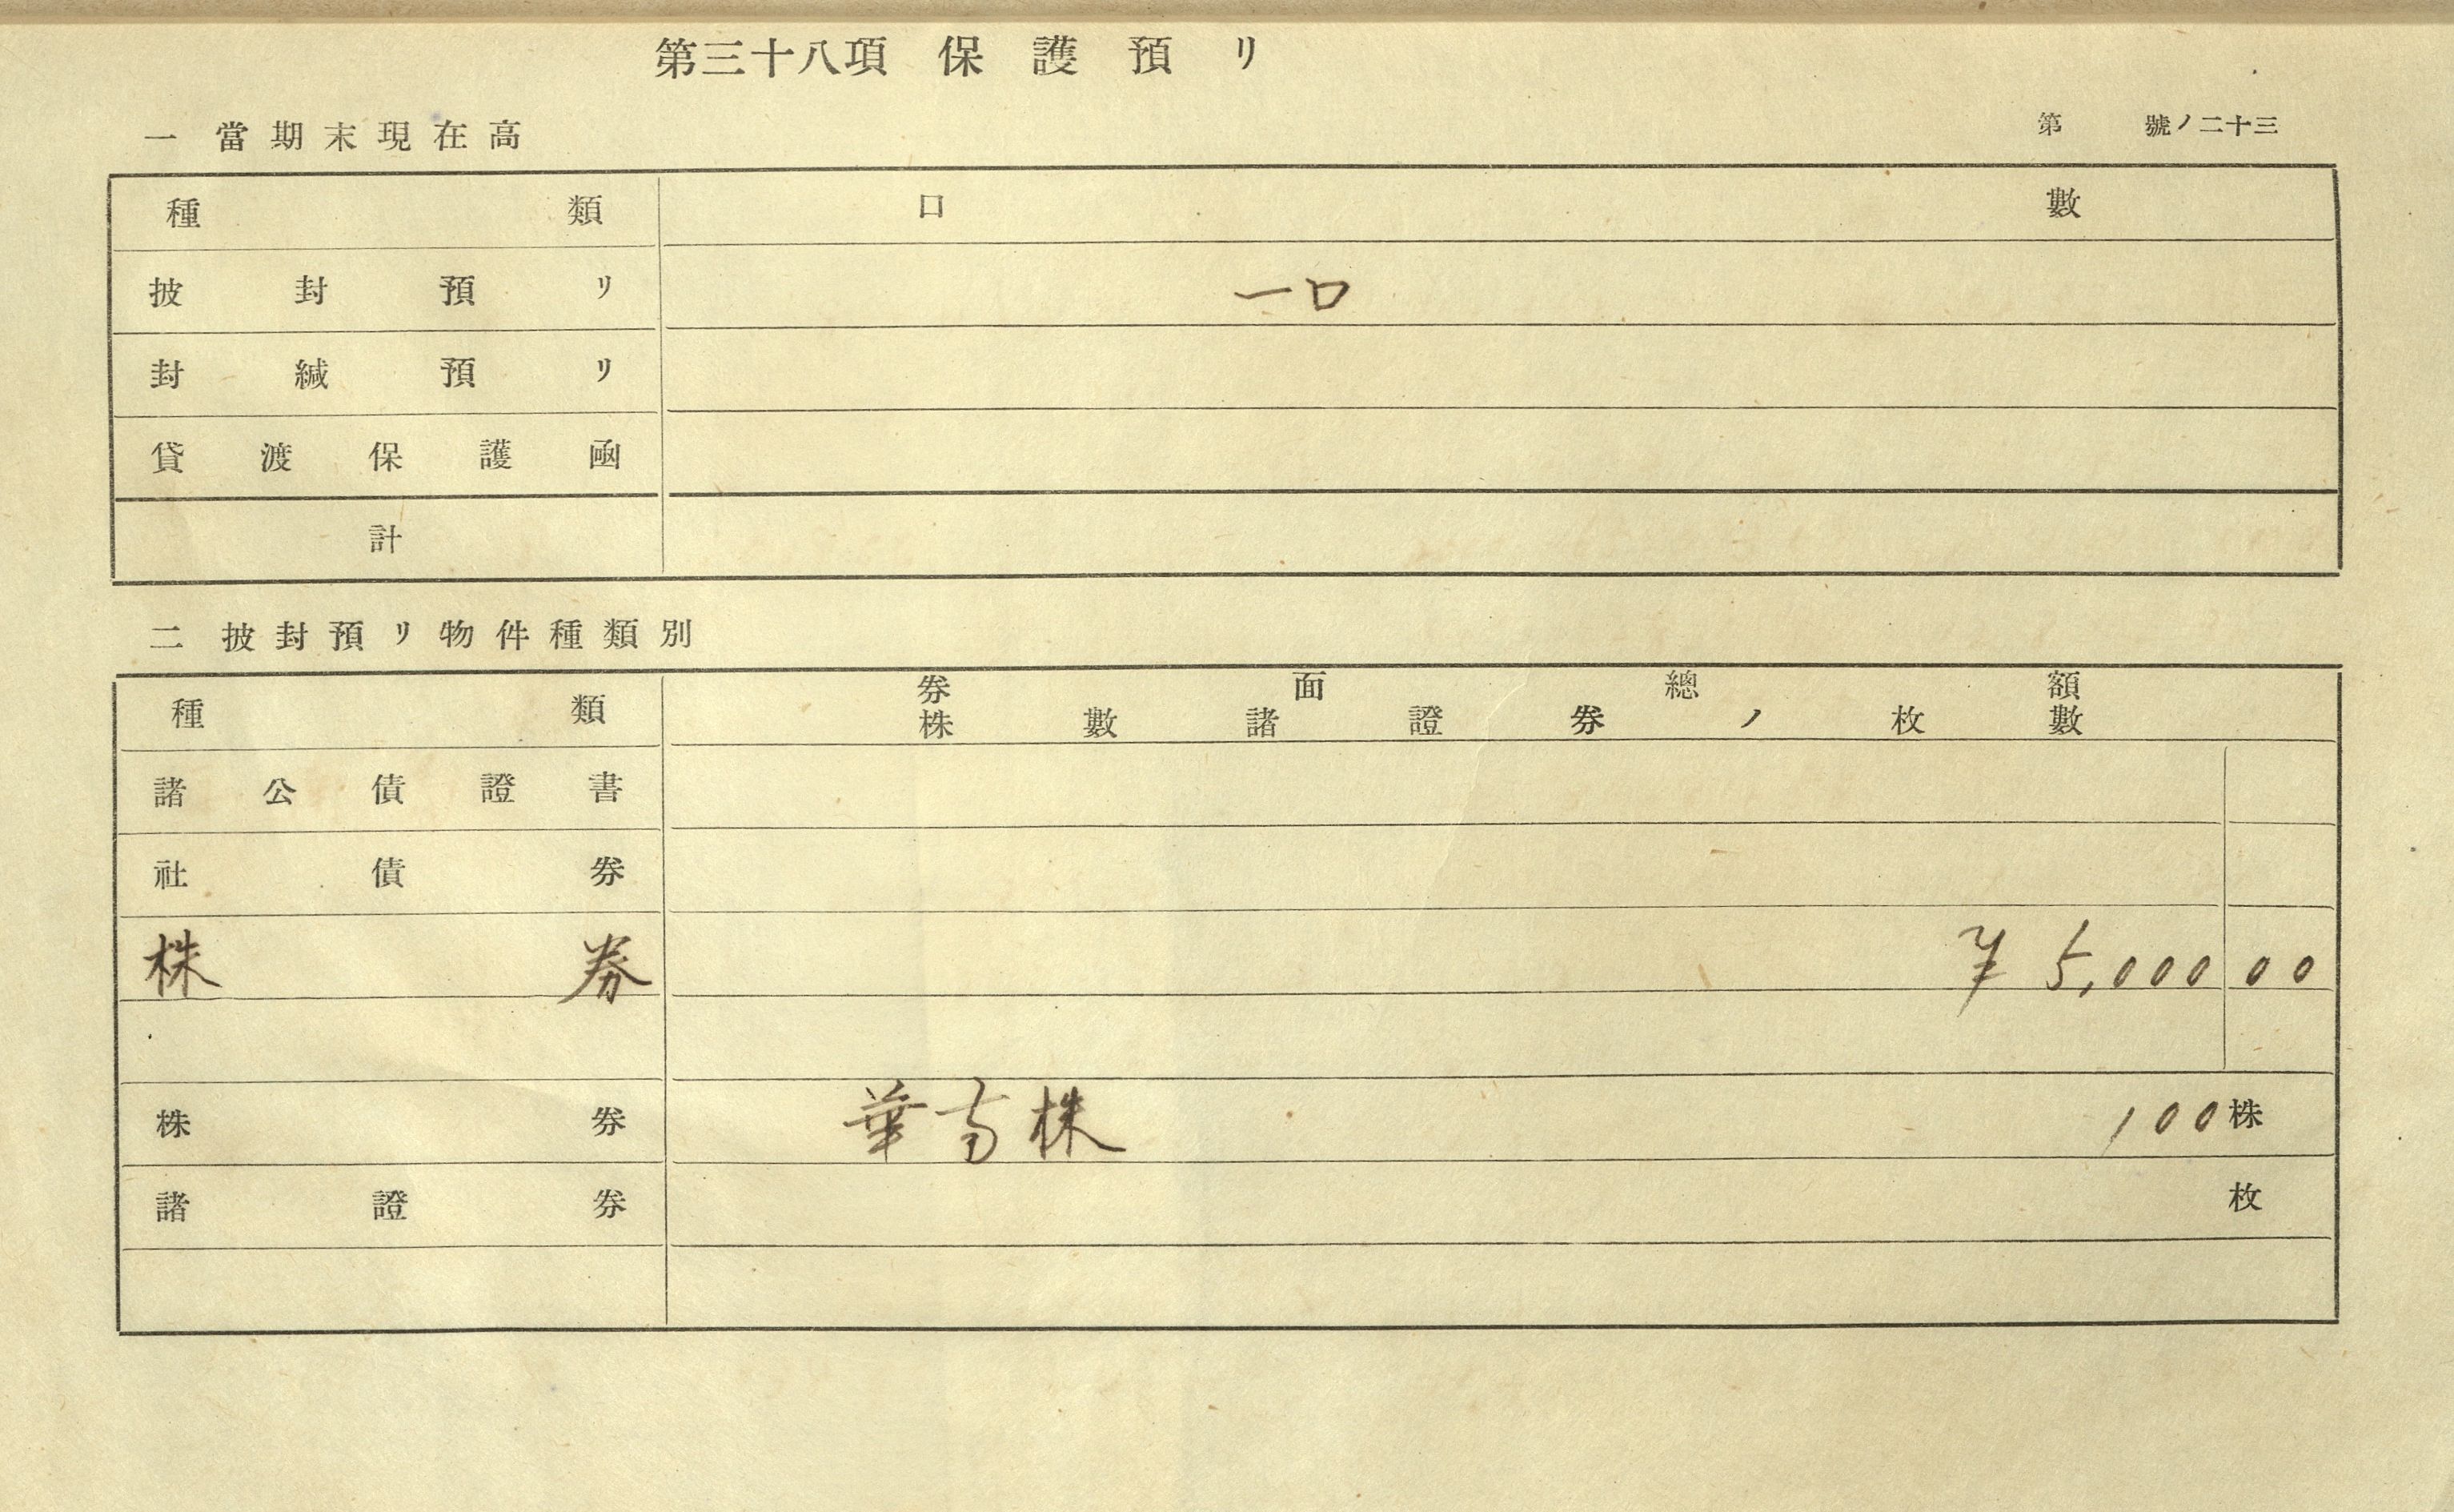 第三十八項 保護預リ
第 號ノ二十三
一 當期末現在高
種類 口數
披封預リ 一口
封緘預リ
貸渡保護凾
計
二 披封預リ物件種類別
種類 券面總額
株數諸證券ノ枚數
諸公債證書
社債券
株券 ¥5,000 00
株券 華南株 100株
諸證券 枚